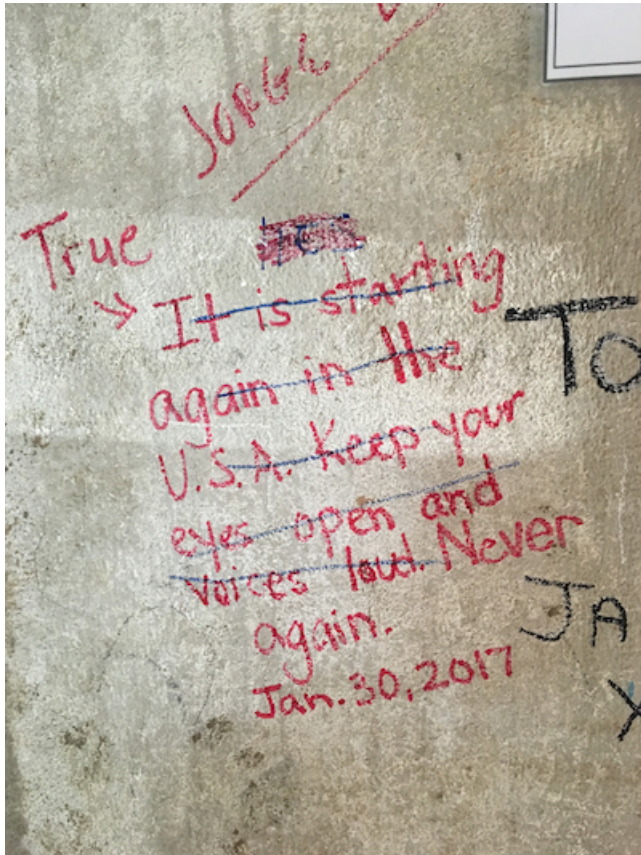 JORGE
True
It is starting
again in the
U.S.A. Keep your
eyes open and
voices loud. Never
again.
Jan. 30, 2017
TO
JA
Y